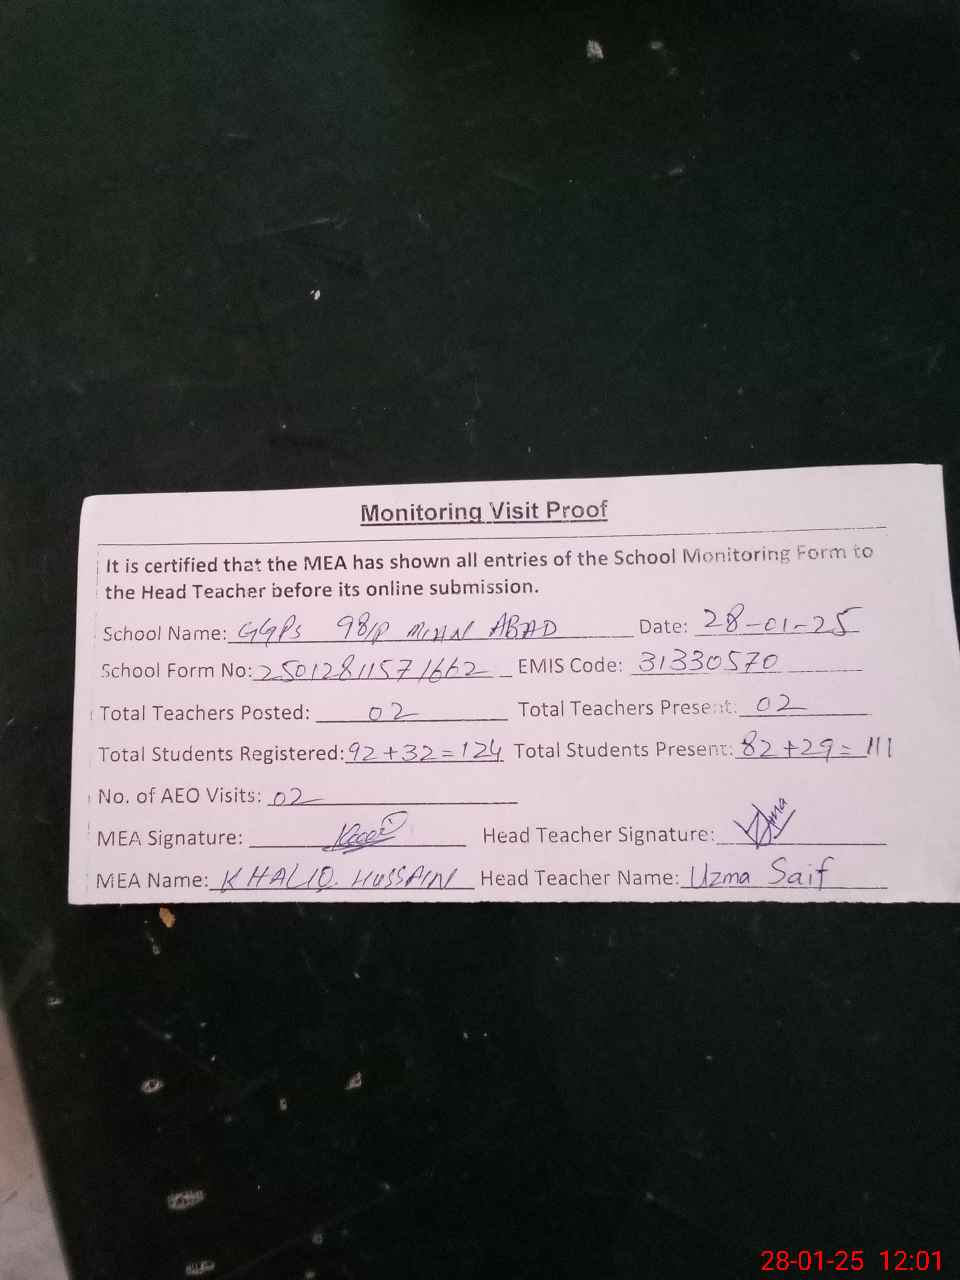 Monitoring Visit Proof
It is certified that the MEA has shown all entries of the School Monitoring Form to
the Head Teacher before its online submission.
School Name: GGPS 98/P MIAN ABAD Date: 28-01-25
School Form No: 25012811571662 EMIS Code: 31330570
Total Teachers Posted: 02 Total Teachers Present: 02
Total Students Registered: 92+32=124 Total Students Present: 82+29=111
No. of AEO Visits: 02
MEA Signature: Head Teacher Signature: Uzma
MEA Name: KHALIQ. HUSSAIN Head Teacher Name: Uzma Saif
28-01-25 12:01